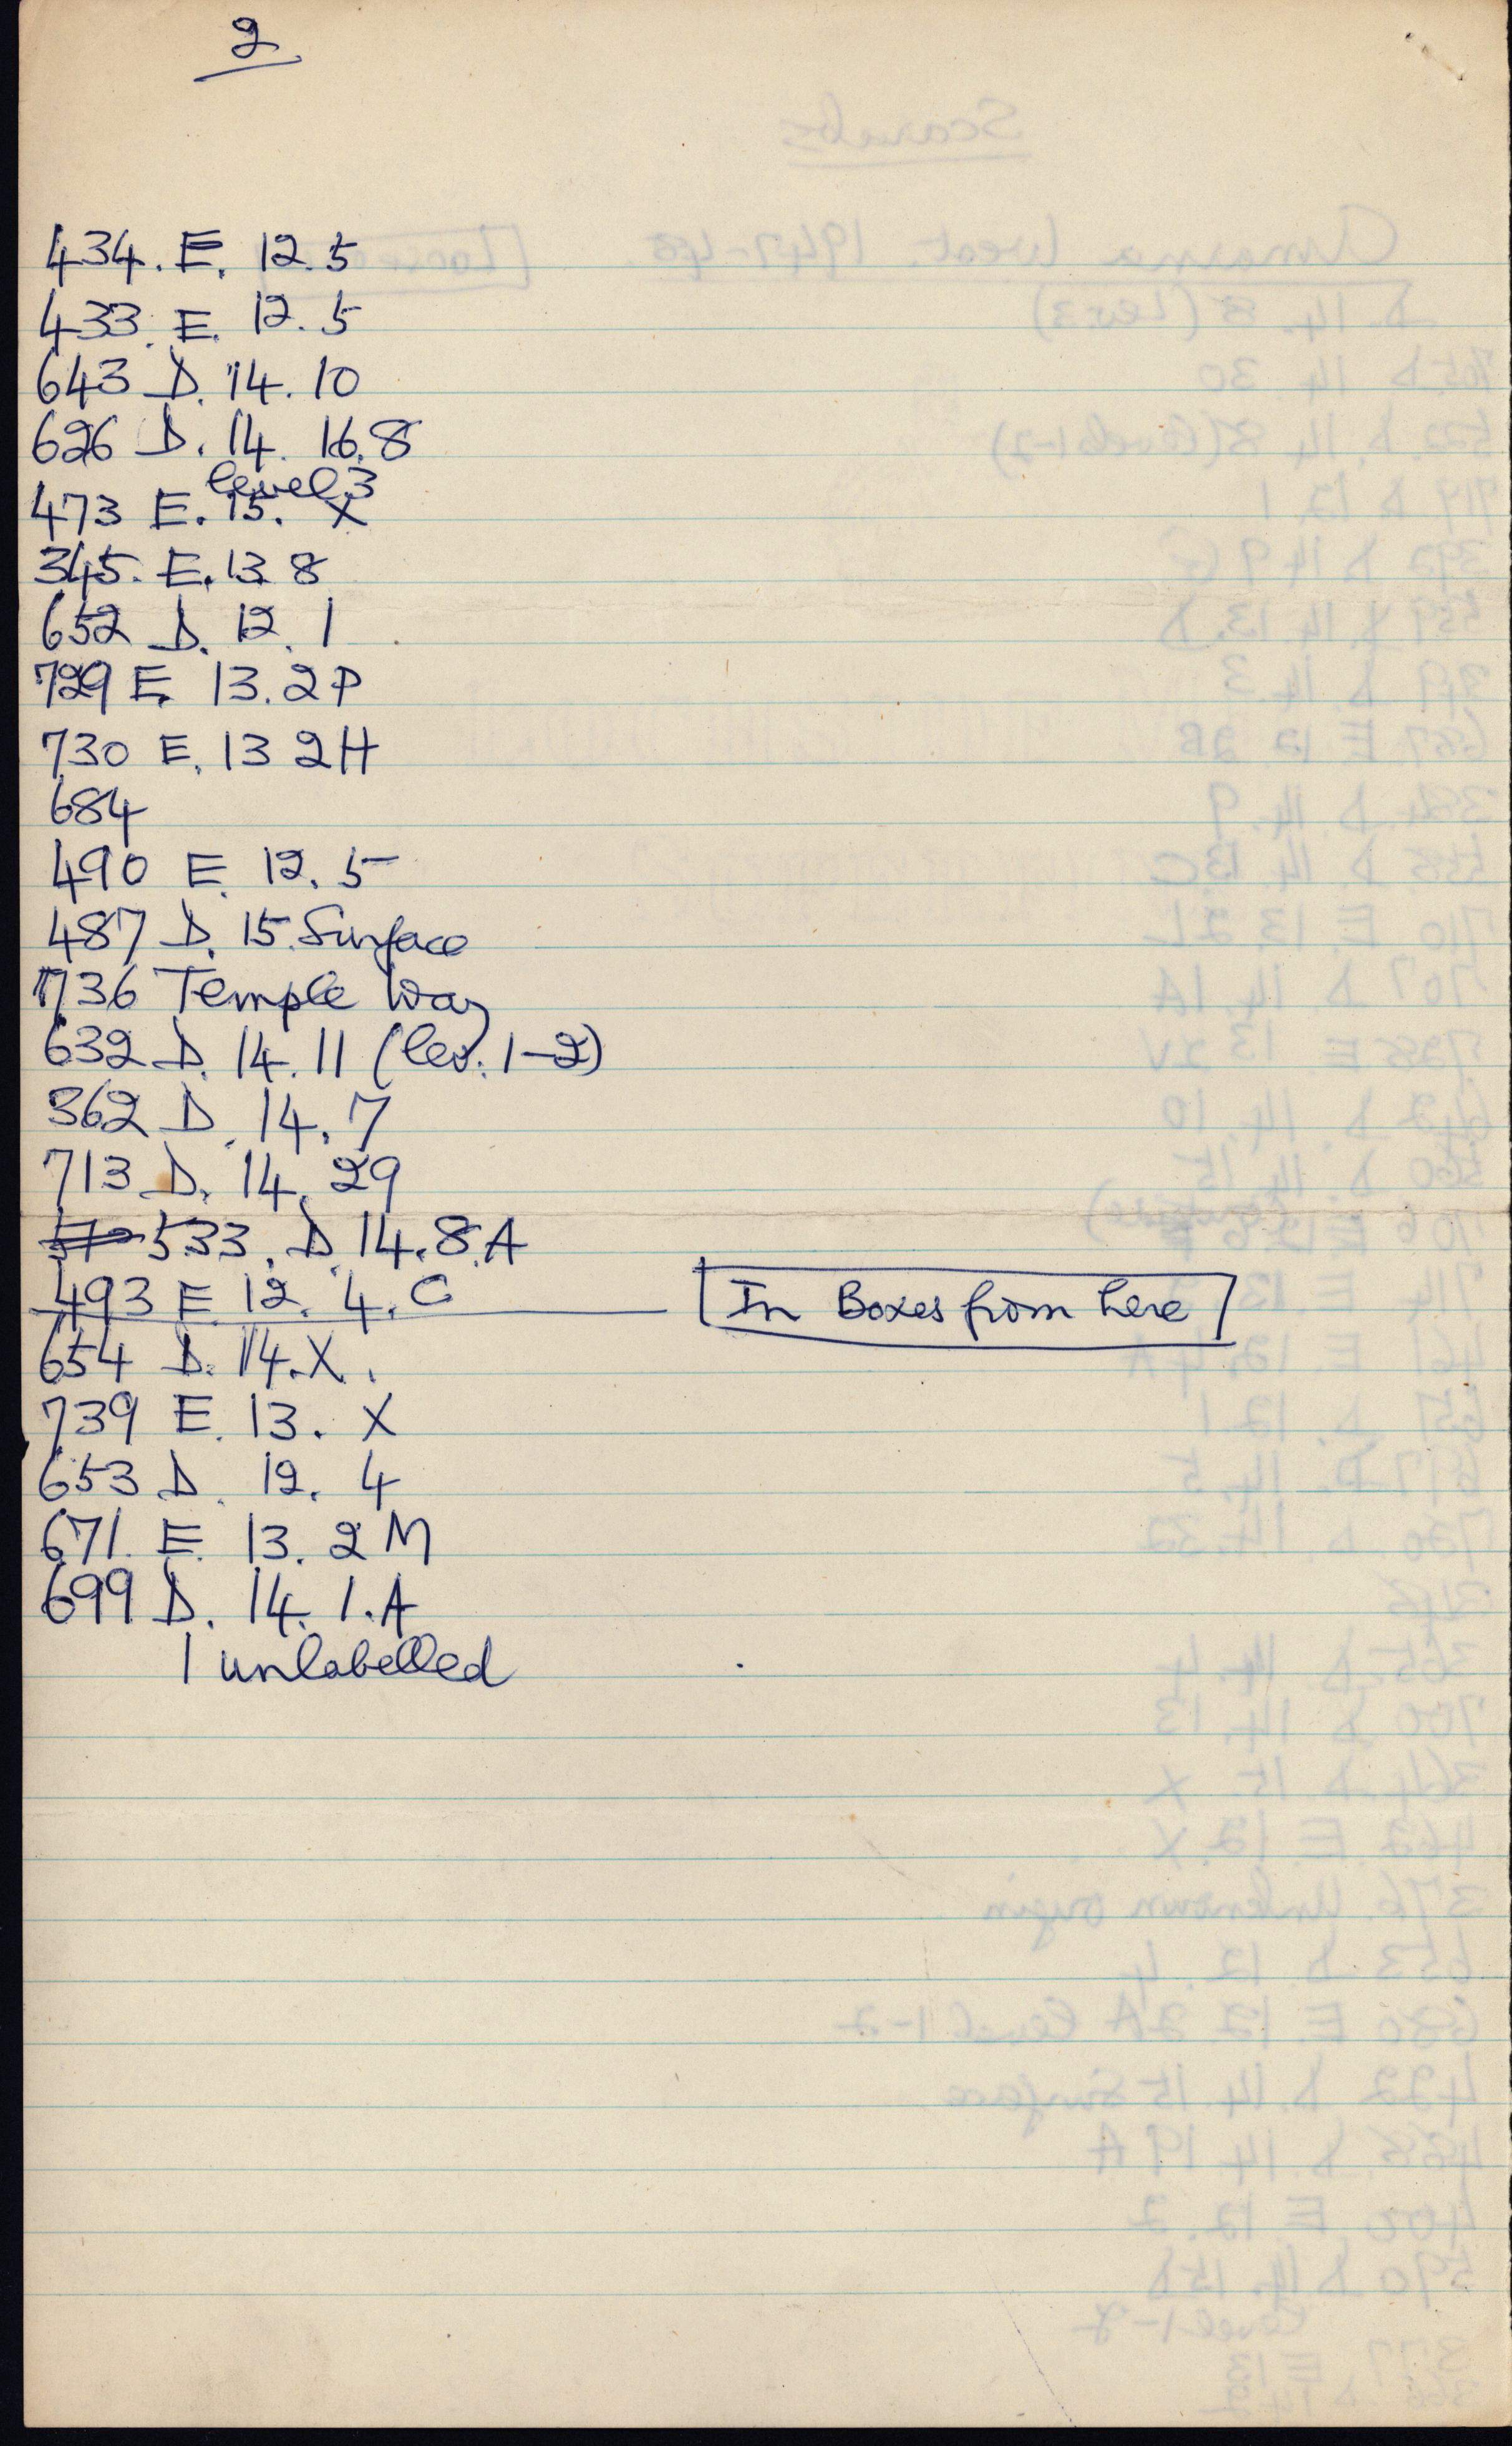 2
434. E. 12.5
433. E. 12.5
643 D. 14. 10
626 D. 14. 16.8
level 3
473 E. 15. X
345. E. 13 8
652 D. 12. 1
729 E. 13. 2P
730 E. 13 2H
684
490 E. 12. 5
487 D. 15. Surface
736 Temple Way
632 D. 14. 11 (lev. 1-2)
362 D. 14. 7
713 D. 14. 29
533. D. 14. 8. A
493 E 12. 4. C
In Boxes from here
654 D. 14. X.
739 E. 13. X
653 D. 12. 4
671. E. 13. 2 M
699 D. 14. 1. A
1 unlabelled